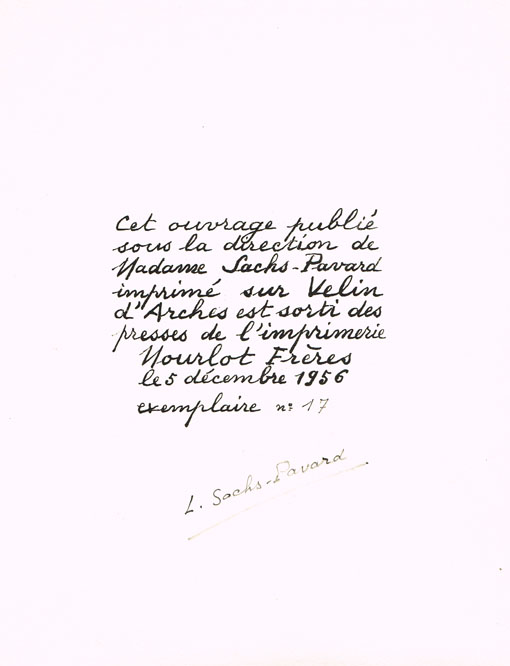 Cet ouvrage publié
sous la direction de
Madame Sachs-Pavard
imprimé sur Velin
d'Arches est sorti des
presses de l'imprimerie
Mourlot Frères
le 5 décembre 1956
exemplaire n° 17
L. Sachs-Pavard